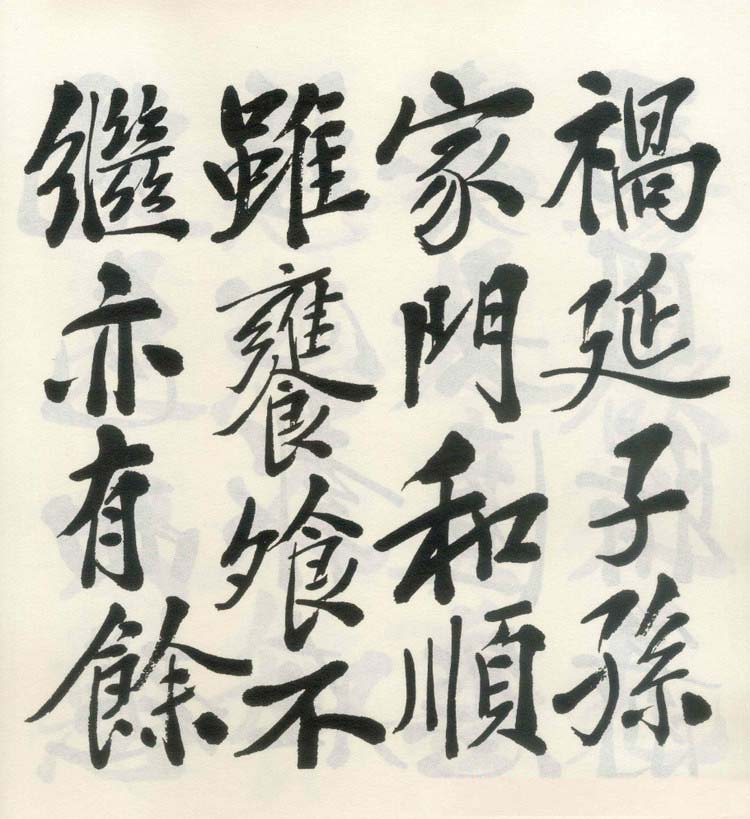 禍延子孫
家門和順
雖饔飧不
繼亦有餘